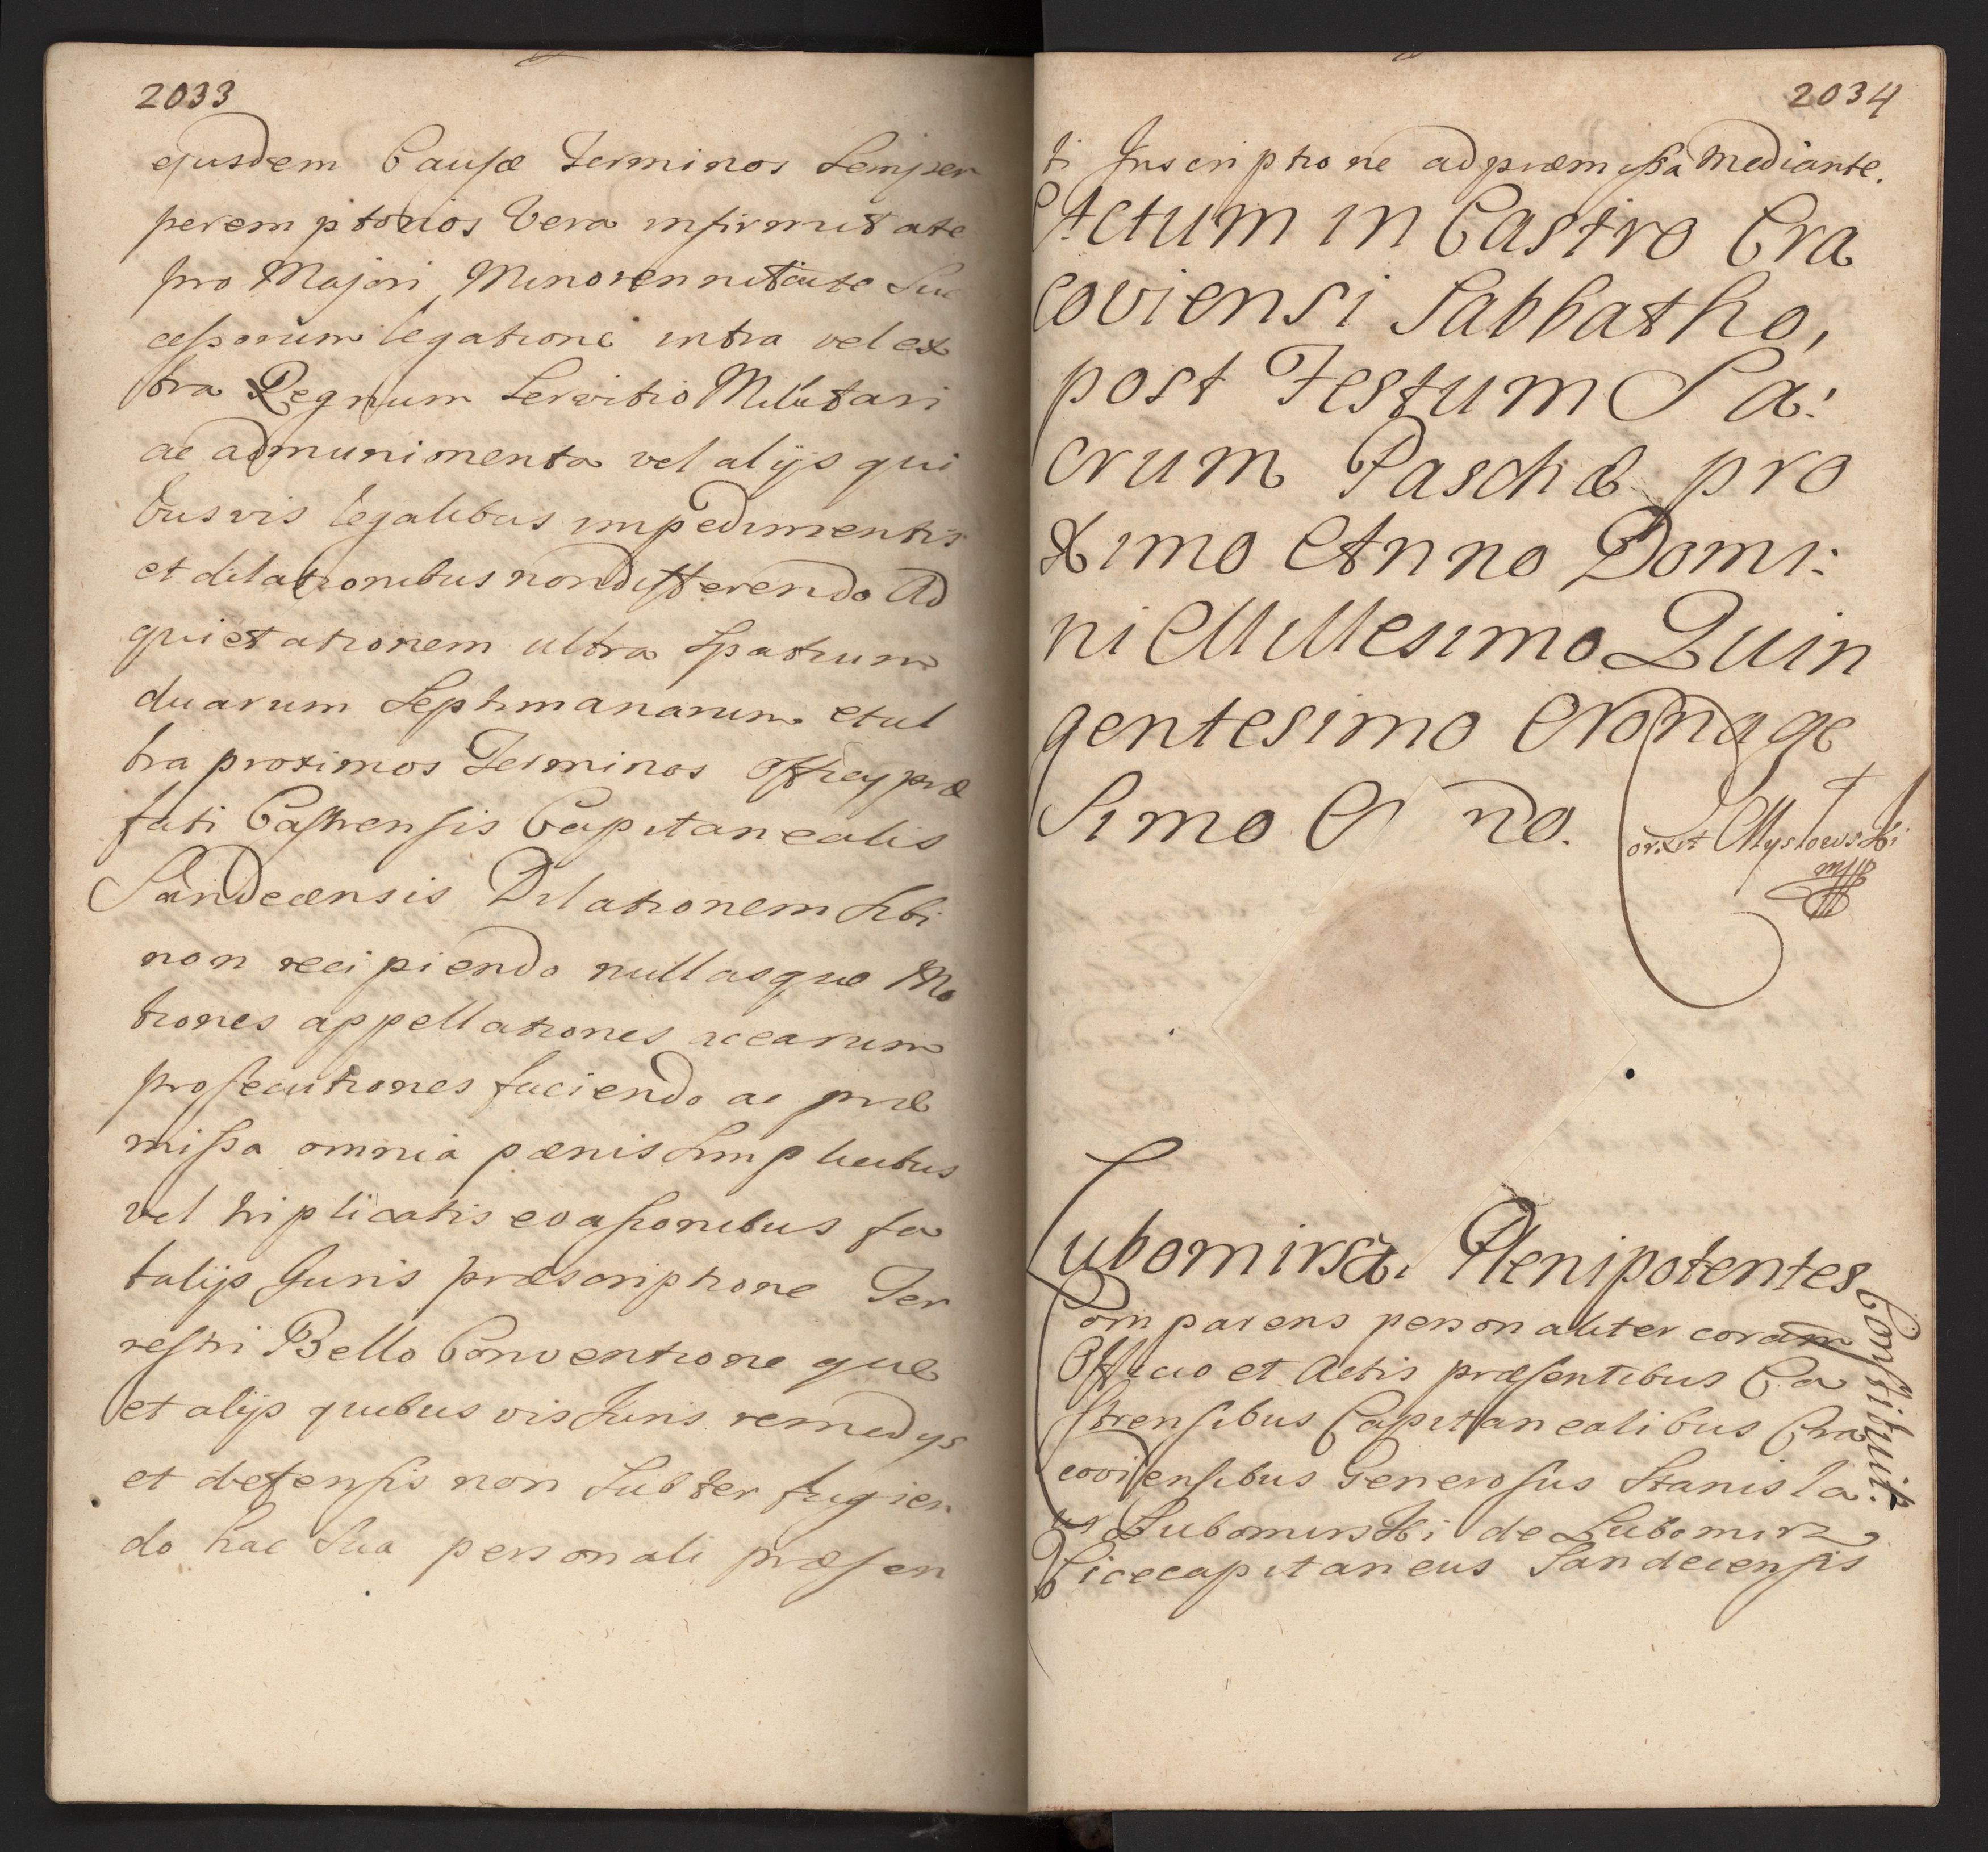 2033
ejusdem Causæ Terminos Semper
peremptorios Vera infirmitate
pro Majori, Minorennitate Suc
cessorum legatione intra vel ex
tra Regnum Servitio Militari
ac ad munimenta vel alijs qui
busvis legalibus impedimentis
et dilationibus non differendo Ad
quietationem ultra Spatium
duarum Septimanarum et ul
tra proximos Terminos Officij præ
fati Castrensis Capitanealis
Sandecensis Dilationem Sibi
non recipiendo nullasque Mo
tiones appellationes ac earum
prosecutiones faciendo ac præ
missa omnia pænis Simplicibus
vel triplicatis evasionibus fa
talijs Juris præscriptione Ter
restri Bello Conventione que
et alijs quibus vis Juris remedijs
et defensis non Subter fugien
do hac Sua personali præsen
2034
ti Inscriptione ad præmissa Mediante.
Actum in Castro Cra
coviensi Sabbatho,
post Festum Sa:
crum Paschæ pro
ximo Anno Domi:
ni Millesimo Quin
gentesimo Nonage
Simo No.
Myslowski
mpp
Lubomirski Plenipotentes
Constituit
Comparens personaliter coram
Officio et Actis præsentibus Ca
strensibus Capitanealibus Cra
coviensibus Generosus Stanisla:
us Lubomirski de Lubomirz
Vicecapitaneus Sandecensis